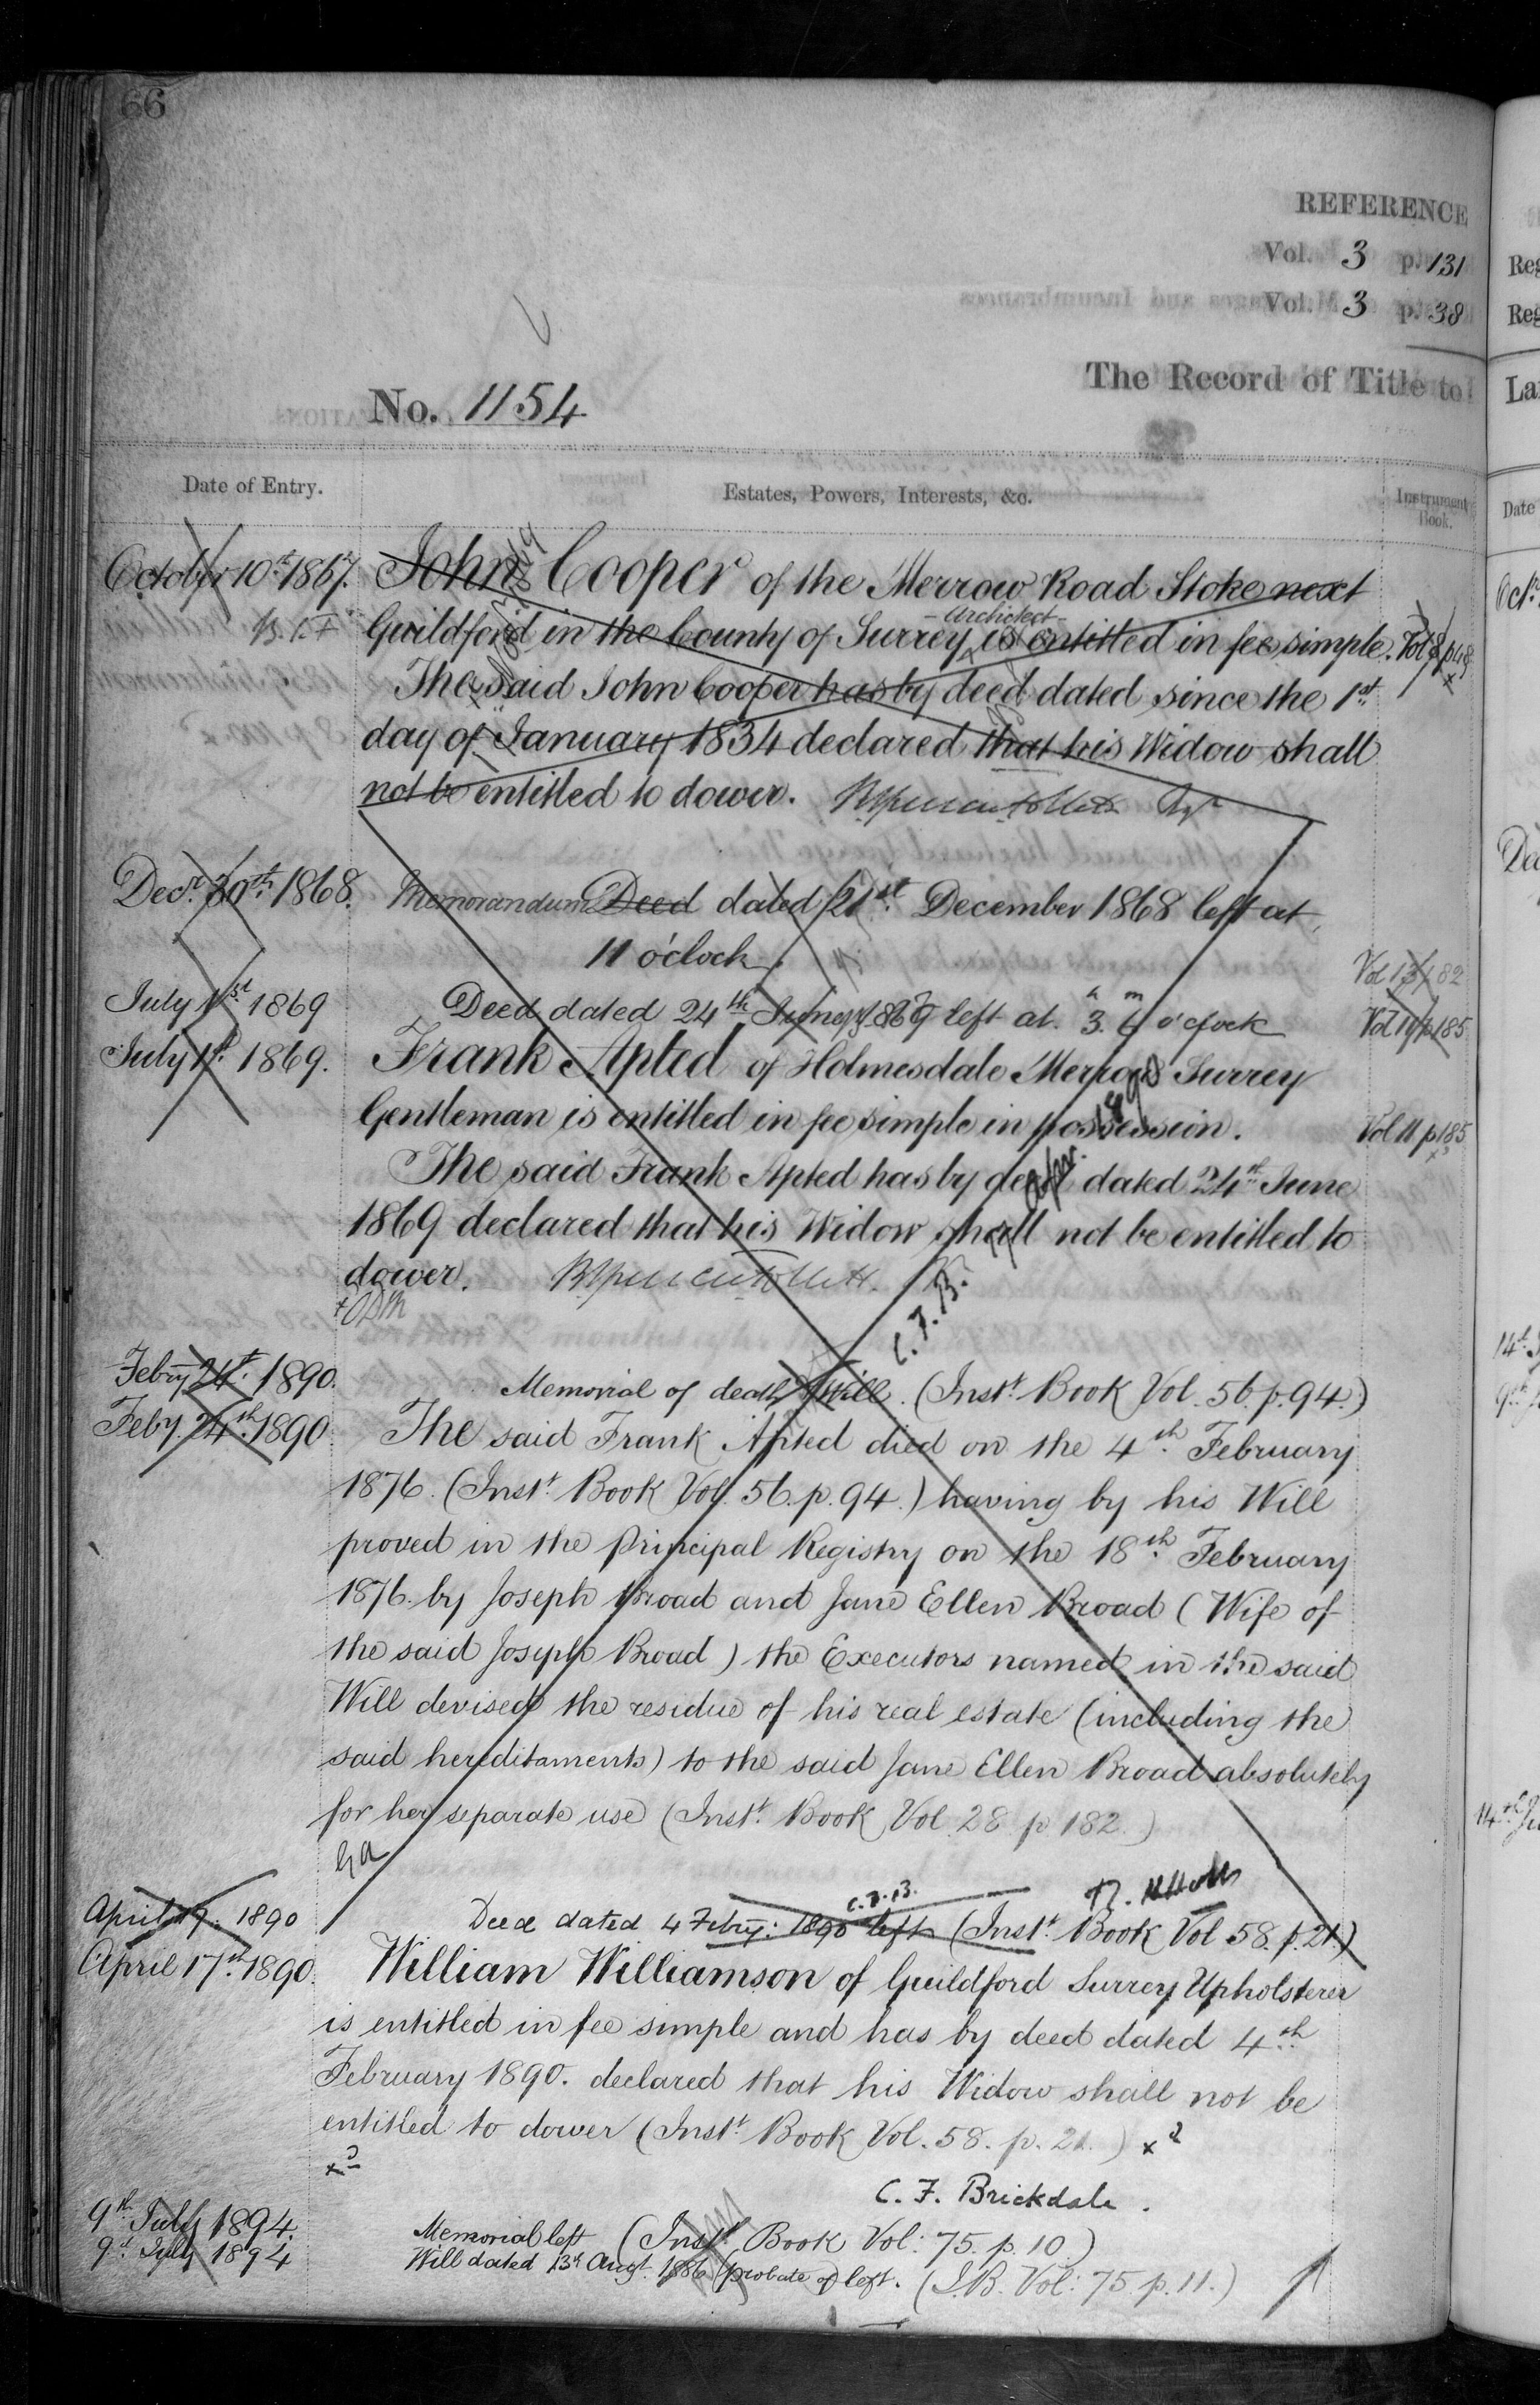 66
REFERENCE
Vol. 3 p. 131
Vol. 3 p. 38
No. 1154
The Record of Title to
Date of Entry.
Estates, Powers, Interests, &c.
Instrument Book.
October 10th 1867. John Cooper of the Merrow Road Stoke next
Architect
Guildford in the County of Surrey is entitled in fee simple. Vol 8 p 48
The said John Cooper has by deed dated since the 1st
day of January 1834 declared that his Widow shall
not be entitled to dower.
Decr. 30th 1868. Memorandum Deed dated 21st December 1868 left at
11 o'clock
Vol 13 p 82
July 1st 1869 Deed dated 24th June 1869 left at 3h. 6m o'clock Vol 11 p 185
July 1st 1869. Frank Apted of Holmesdale Merrow Surrey
Gentleman is entitled in fee simple in possession. Vol 11 p 185
The said Frank Apted has by deed dated 24th June
1869 declared that his Widow shall not be entitled to
dower.
Febry 24th 1890. Memorial of death & Will. (Instt Book Vol. 56. p. 94.)
Feby. 24th 1890 The said Frank Apted died on the 4th February
1876. (Instt Book Vol. 56. p. 94.) having by his Will
proved in the Principal Registry on the 18th February
1876. by Joseph Broad and Jane Ellen Broad (Wife of
the said Joseph Broad) the Executors named in the said
Will devised the residue of his real estate (including the
said hereditaments) to the said Jane Ellen Broad absolutely
for her separate use (Instt Book Vol 28 p 182.)
C.F.B.
April 17. 1890 Deed dated 4 Febry: 1890 left (Instt Book Vol 58. p. 21.)
April 17th 1890. William Williamson of Guildford Surrey Upholsterer
is entitled in fee simple and has by deed dated 4th
February 1890. declared that his Widow shall not be
entitled to dower (Instt Book Vol. 58. p. 21.)
C. F. Brickdale.
9th July 1894. Memorial left (Instt Book Vol: 75. p. 10)
9th July 1894 Will dated 13th Augt. 1886 (probate of) left. (I.B. Vol: 75. p. 11.)